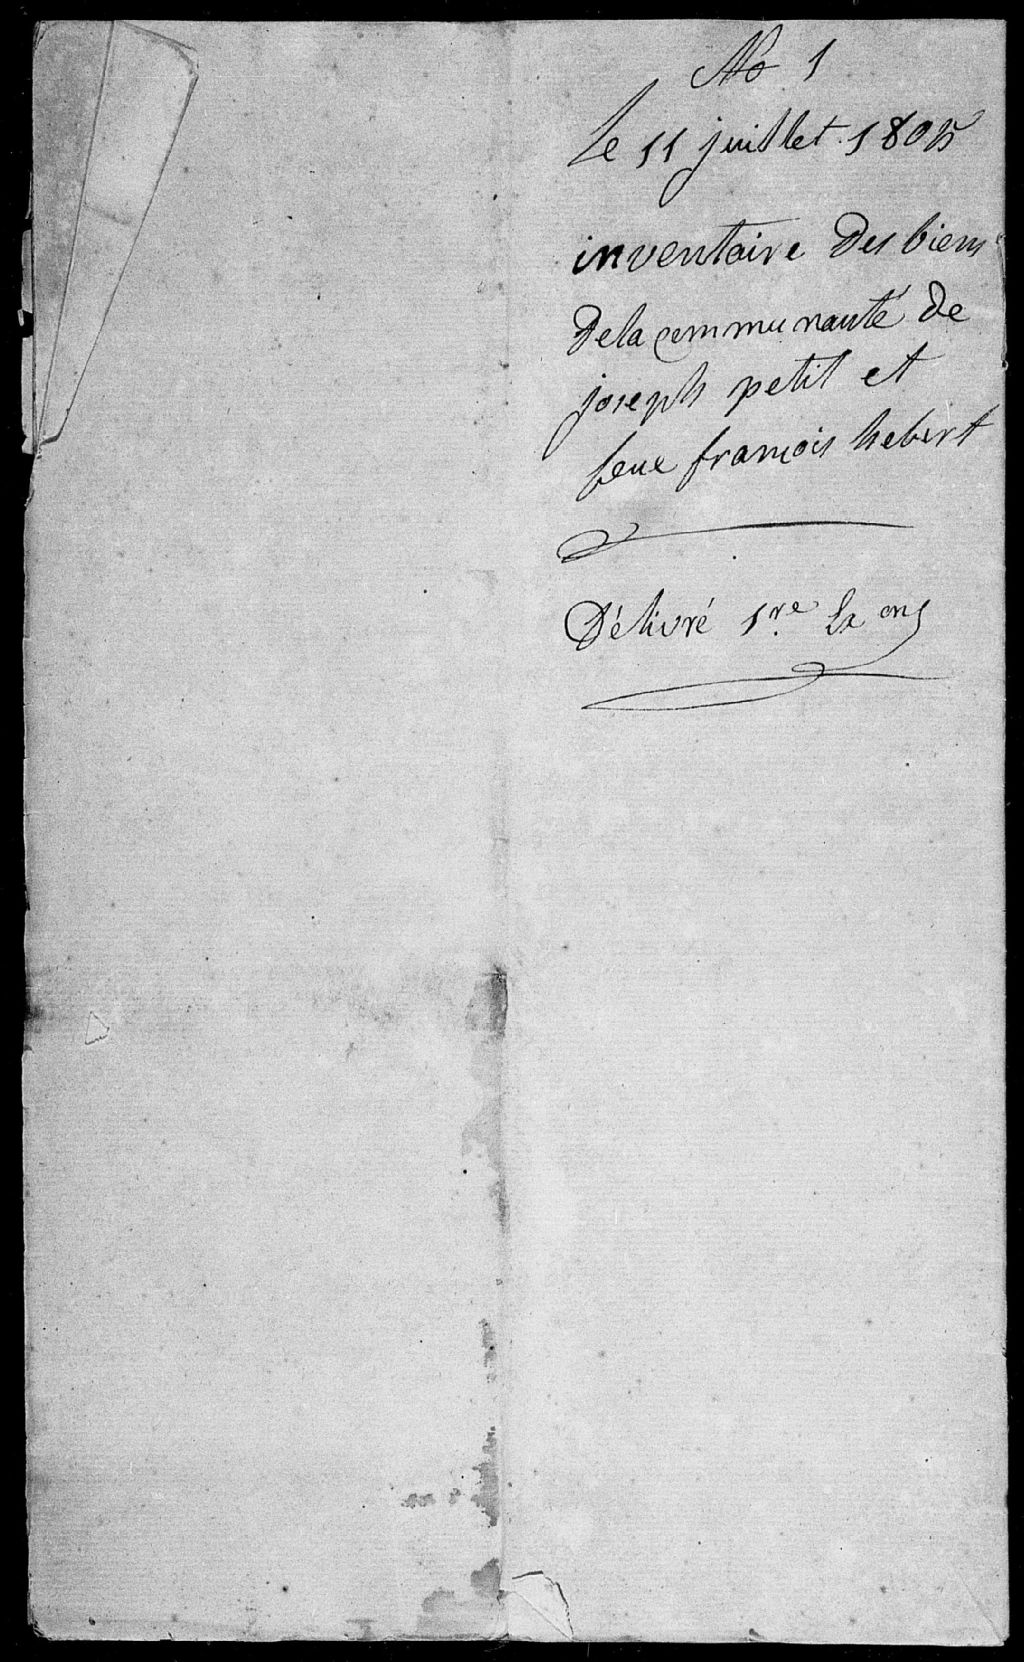 No 1
Le 11 juillet 1805
inventaire Des biens
De la communauté de
joseph petit et
feue françois hebert
Délivré 1re